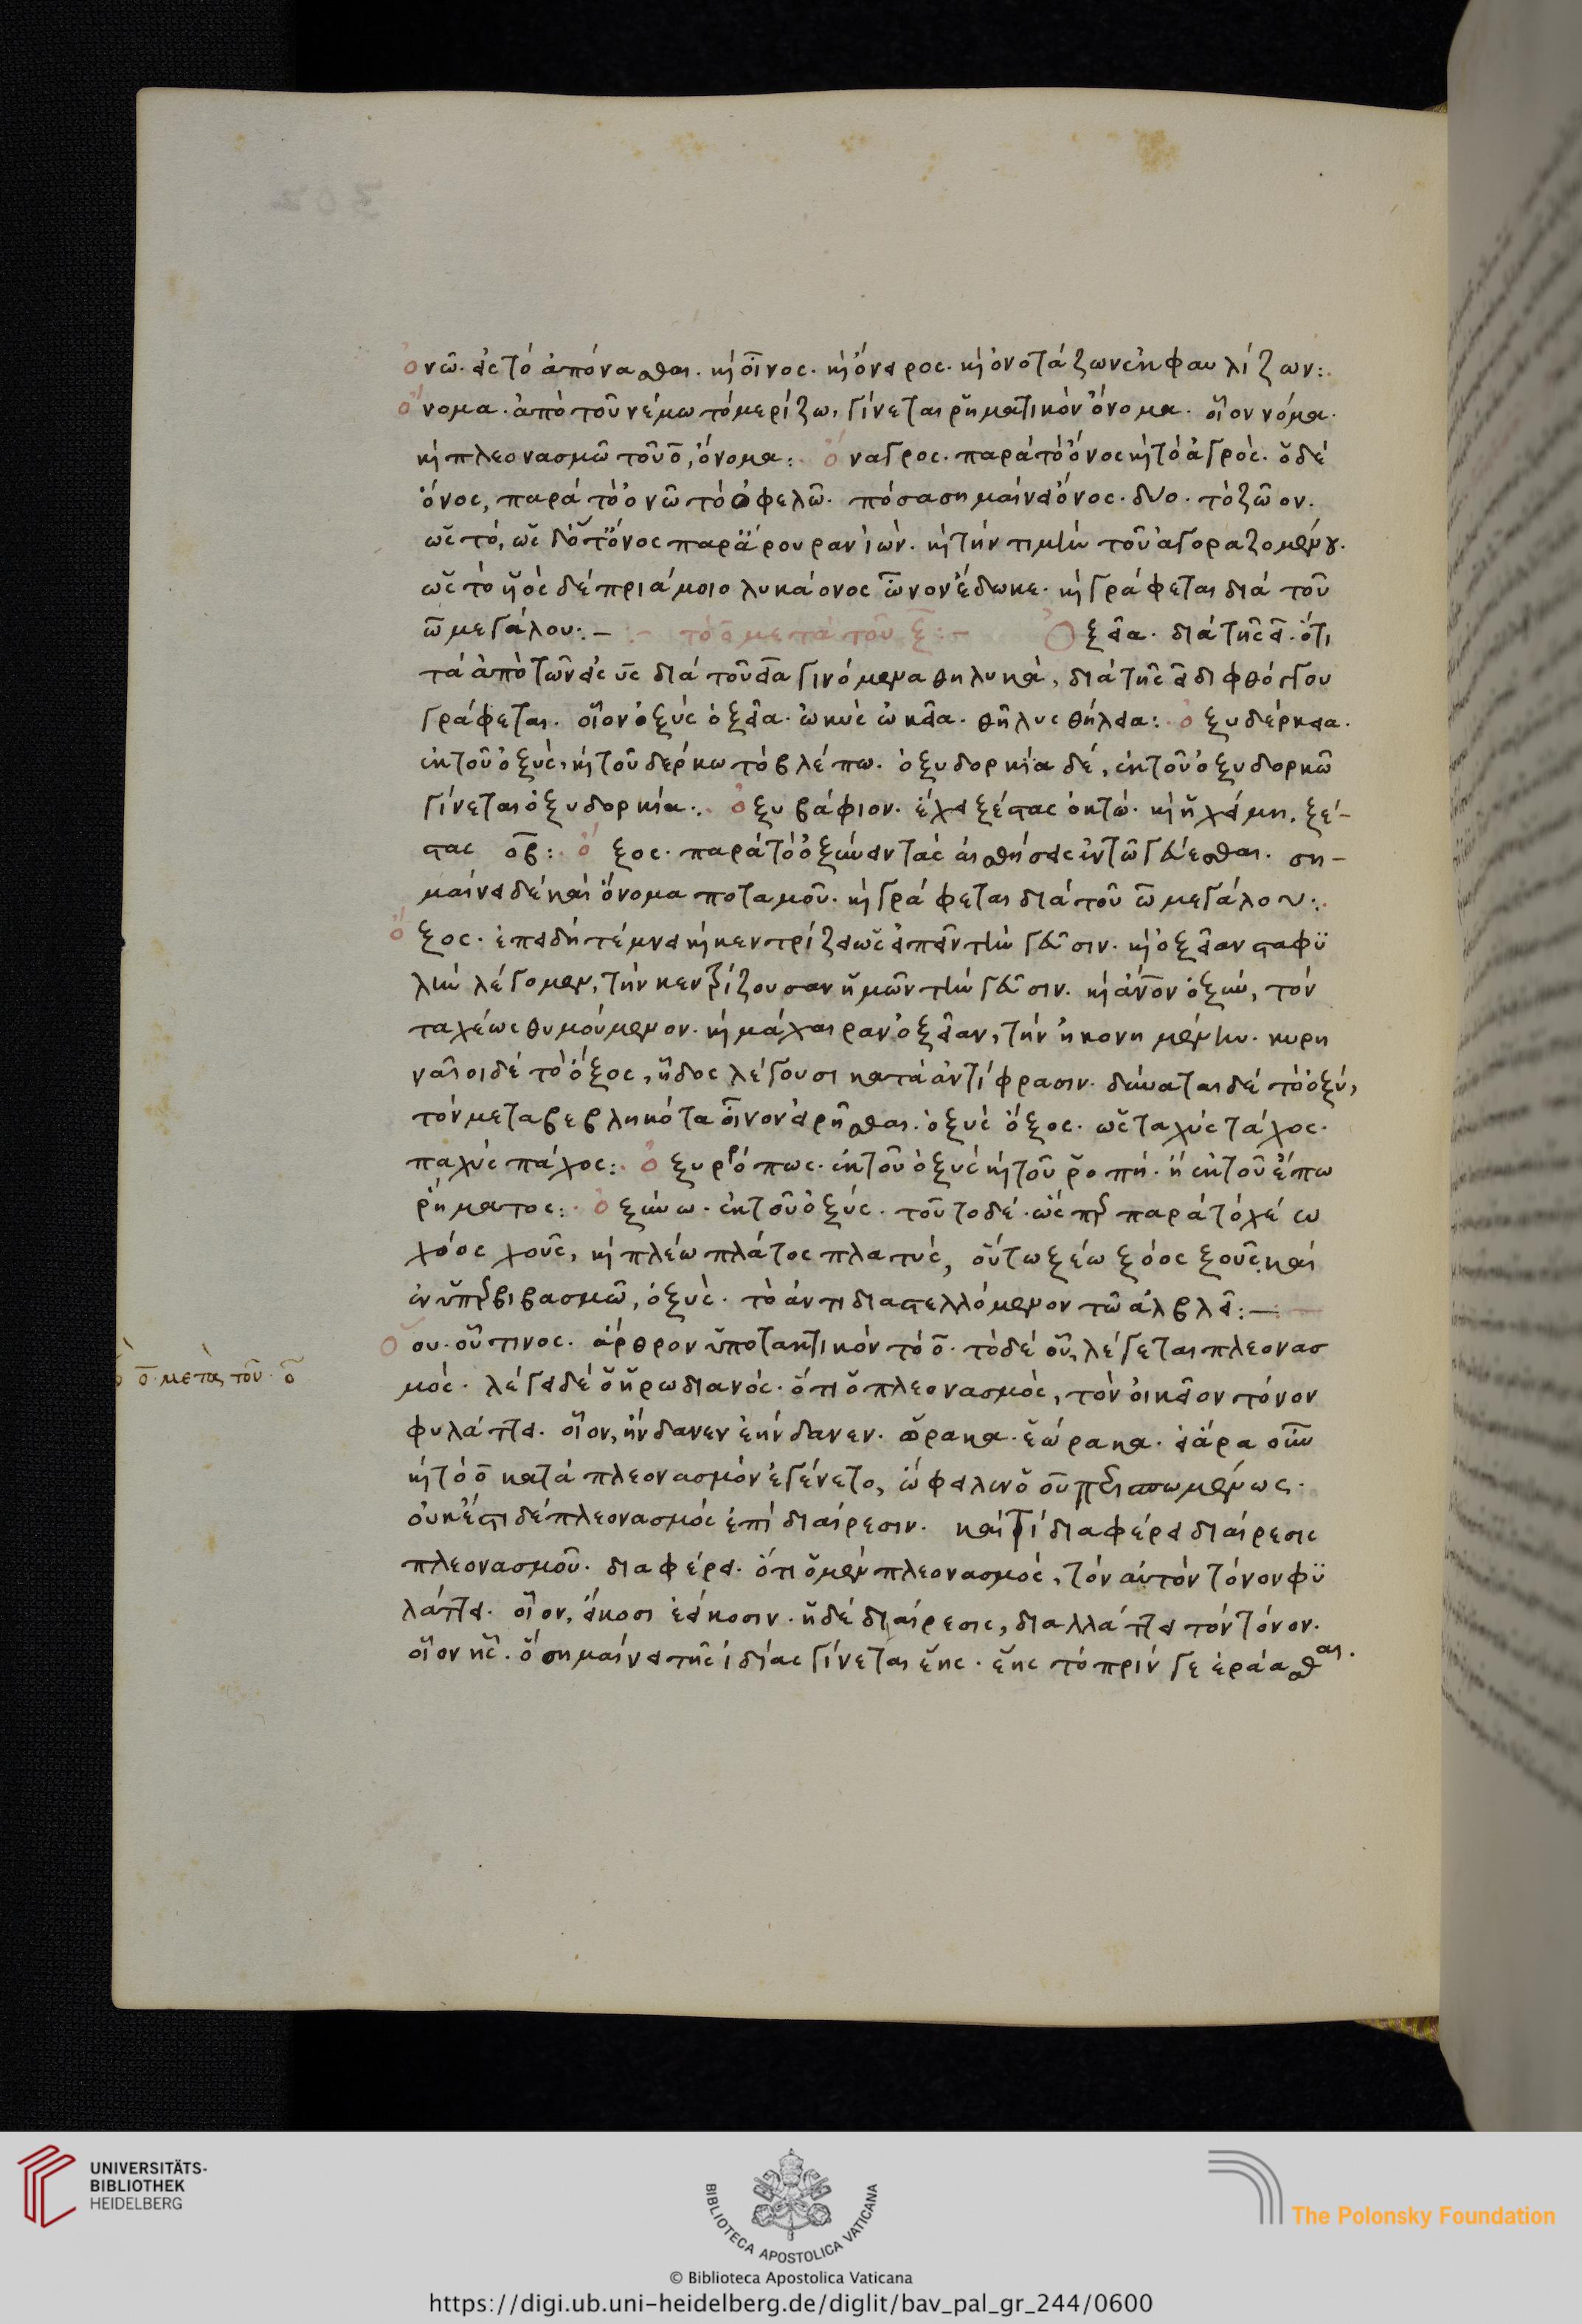 ὀνῶ. εἰς τὸ ἀπόνασθαι. καὶ οἶνος. καὶ ὄνειρος. καὶ ὀνοτάζων ἐκφαυλίζων:.
ὄνομα. ἀπὸ τοῦ νέμω τὸ μερίζω, γίνεται ῥηματικὸν ὄνομα. οἷον νόμα.
καὶ πλεονασμῶ τοῦ ο̄, ὄνομα:. ὄναγρος. παρὰ τὸ ὄνος καὶ τὸ ἀγρός. ὁ δὲ
ὄνος, παρὰ τὸ ὀνῶ τὸ ὀφελῶ. πόσα σημαίνει ὄνος. δυο. τὸ ζῶον.
ὡς τό, ὡς δ' ὅτ' ὄνος παρ' ἄρουραν ἰών. καὶ τὴν τιμὴν τοῦ ἀγοραζομένου.
ὡς τὸ υἷος δὲ πριάμοιο λυκάονος ὦνον ἔδωκε. καὶ γράφεται διὰ τοῦ
ω̄ μεγάλου:. – τὸ ο̄ μετὰ τοῦ ξ̄:– Ὀξεῖα. διὰ τῆς ει. ὅτι
τὰ ἀπὸ τῶν εἰς υς διὰ τοῦ εια γινόμενα θηλυκά, διὰ τῆς ει διφθόγγου
γράφεται. οἷον ὀξύς ὀξεῖα. ὠκύς ὠκεῖα. θῆλυς θήλεια:. ὀξυδέρκεια.
ἐκ τοῦ ὀξύς, καὶ τοῦ δέρκω τὸ βλέπω. ὀξυδορκία δέ, ἐκ τοῦ ὀξυδορκῶ
γίνεται ὀξυδορκία:. ὀξυβάφιον. ἔχει ξέστας ὀκτώ. καὶ ἡ χείμη, ξέ–
στας οβ̄:. ὄξος. παρὰ τὸ ὀξύνειν τὰς αἰσθήσεις ἐν τῶ γεύεσθαι. ση–
μαίνει δὲ καὶ ὄνομα ποταμοῦ. καὶ γράφεται διὰ τοῦ ω̄ μεγάλου:.
ὄξος. ἐπειδὴ τέμνει καὶ κεντρίζει ὡς εἰπεῖν τὴν γεῦσιν. καὶ ὀξεῖαν σταφυ
λὴν λέγομεν, τὴν κεντρίζουσαν ἡμῶν τὴν γεῦσιν. καὶ ἄνον ὀξύν, τὸν
ταχέως θυμούμενον. καὶ μάχαιραν ὀξεῖαν, τὴν ἠκονημένην. κυρη
ναῖοι δὲ τὸ ὄξος, ἦδος λέγουσι κατὰ ἀντίφρασιν. δύναται δὲ τὸ ὀξύ,
τὸν μεταβεβληκότα οἶνον εἰρῆσθαι. ὀξύς ὄξος. ὡς ταχύς τάχος.
παχύς πάχος:. ὀξυρρόπως. ἐκ τοῦ ὀξύς καὶ τοῦ ῥοπή. ἢ ἐκ τοῦ ἔπω
ῥήματος:. ὀξύνω. ἐκ τοῦ ὀξύς. τοῦτο δέ. ὥσπερ παρὰ τὸ χέω
χόος χοῦς, καὶ πλέω πλάτος πλατύς, οὕτω ξέω ξόος ξοῦς, καὶ
ἐν ὑπερβιβασμῶ, ὀξύς. τὸ ἀντιδιαστελλόμενον τῶ ἀλβλει:–
Ὅου. οὗτινος. ἄρθρον ὑποτακτικὸν τὸ ο̄. τὸ δὲ οὗ, λέγεται πλεονασ
ὁ ο̄ μετὰ τοῦ ο̄
μός. λέγει δὲ ὁ ἡρωδιανός. ὅτι ὁ πλεονασμός, τὸν οἰκεῖον τόνον
φυλάττει. οἷον, ἥνδανεν ἑήνδανεν. ὥρακα. ἑώρακα. εἰ ἄρα οὖν
καὶ τὸ ο̄ κατὰ πλεονασμὸν ἐγένετο, ὤφειλεν ὁ οῦ περισπωμένως.
οὐκ ἔστι δὲ πλεονασμός ἐπὶ διαίρεσιν. καὶ τί διαφέρει διαίρεσις
πλεονασμοῦ. διαφέρει. ὅτι ὁ μὲν πλεονασμός, τὸν αὐτὸν τόνον φυ
λάττει. οἷον, εἴκοσι ἐείκοσιν. ἡ δὲ διαίρεσις, διαλλάττει τὸν τόνον.
οἷον ἧς. ὃ σημαίνει τῆς ἰδίας γίνεται ἕης. ἕης τὸ πρίν γε ἐράασθαι.
UNIVERSITÄTS-
BIBLIOTHEK
HEIDELBERG
BIBLIOTECA APOSTOLICA VATICANA
The Polonsky Foundation
© Biblioteca Apostolica Vaticana
https://digi.ub.uni-heidelberg.de/diglit/bav_pal_gr_244/0600